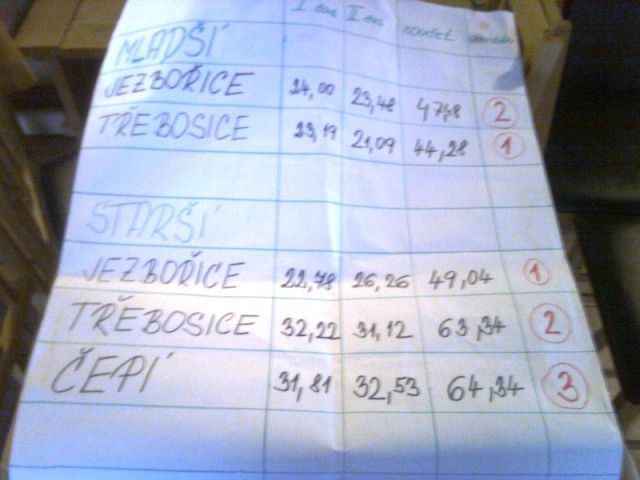 I čas II čas součet
MLADŠÍ
JEZBOŘICE 24,00 23,48 47,48 2
TŘEBOSICE 23,19 21,09 44,28 1
STARŠÍ
JEZBOŘICE 22,78 26,26 49,04 1
TŘEBOSICE 32,22 31,12 63,34 2
ČEPÍ 31,81 32,53 64,34 3